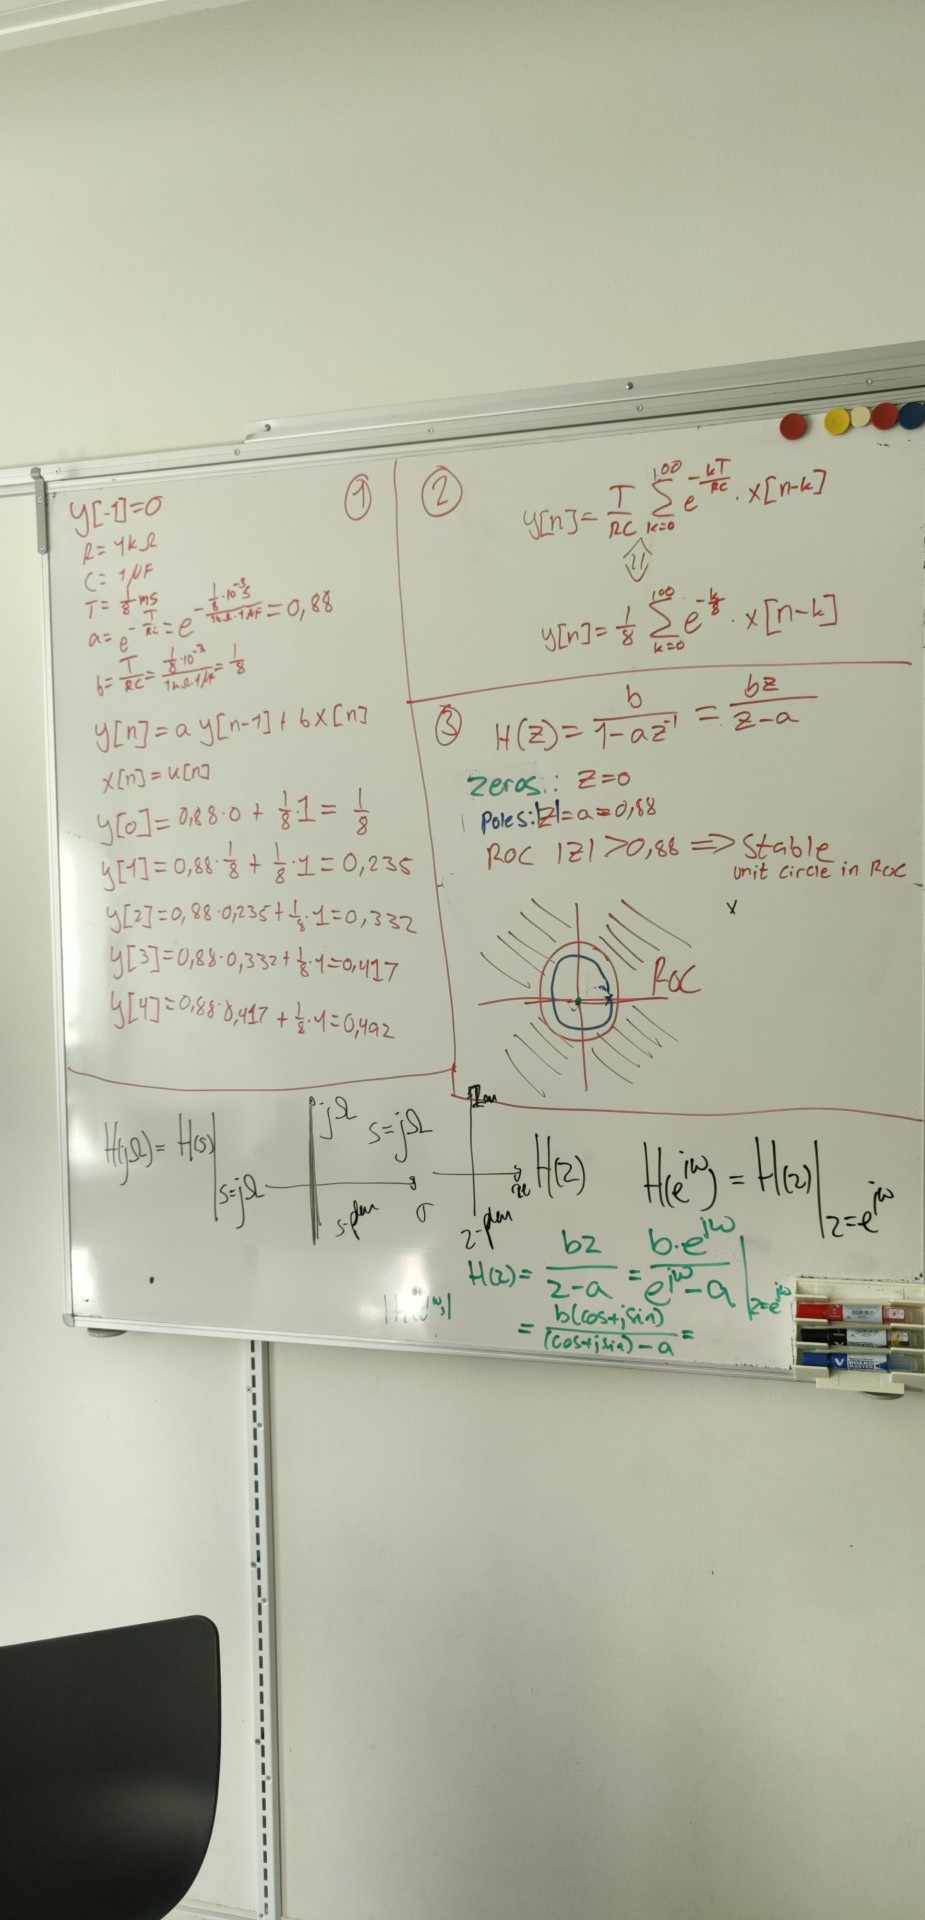 ①
y[-1]=0
R= 1kΩ
C= 1μF
T= 1/8 ms
a= e^(-T/RC) = e^(-(1/8·10^-3 s)/(1kΩ·1μF)) = 0,88
b= T/RC = (1/8·10^-3)/(1kΩ·1μF) = 1/8
y[n] = a y[n-1] + b x[n]
x[n] = u[n]
y[0] = 0,88·0 + 1/8·1 = 1/8
y[1] = 0,88·1/8 + 1/8·1 = 0,235
y[2] = 0,88·0,235 + 1/8·1 = 0,332
y[3] = 0,88·0,332 + 1/8·1 = 0,417
y[4] = 0,88·0,417 + 1/8·1 = 0,492
②
y[n] = T/RC ∑_{k=0}^{100} e^(-kT/RC) · x[n-k]
y[n] = 1/8 ∑_{k=0}^{100} e^(-k/8) · x[n-k]
③
H(z) = b/(1-az^-1) = bz/(z-a)
zeros: z=0
Poles: |z|=a=0,88
ROC |z|>0,88 => Stable
unit circle in ROC
x
ROC
H(jΩ) = H(s)|_{s=jΩ}
jΩ
s=jΩ
σ
s-plan
Im
Re
z-plan
H(z)
H(e^{jω}) = H(z)|_{z=e^{jω}}
H(z) = bz/(z-a) = b·e^{jω}/(e^{jω}-a)|_{z=e^{jω}}
= b(cos+jsin)/((cos+jsin)-a) =